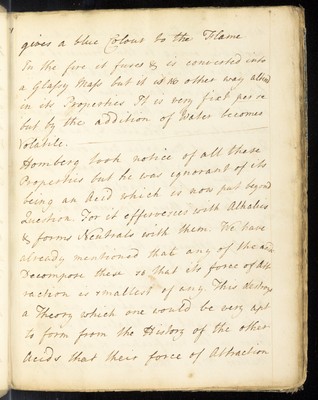 gives a blue Colour to the Flame
In the fire it fuses & is converted into
a Glassy Mass but it is no other way alterd
in its Properties It is very fixt per se
but by the addition of Water becomes
Volatile.
Homberg took notice of all these
Properties but he was ignorant of its
being an Acid which is now put beyond
Question. For it effervesces with Alkalies
& forms Neutrals with them. We have
already mentioned that any of the
Decompose these so that its force of At-
raction is smallest of any. This destroys
a Theory which one would be very apt
to form from the History of the other
Acids that their force of Attraction